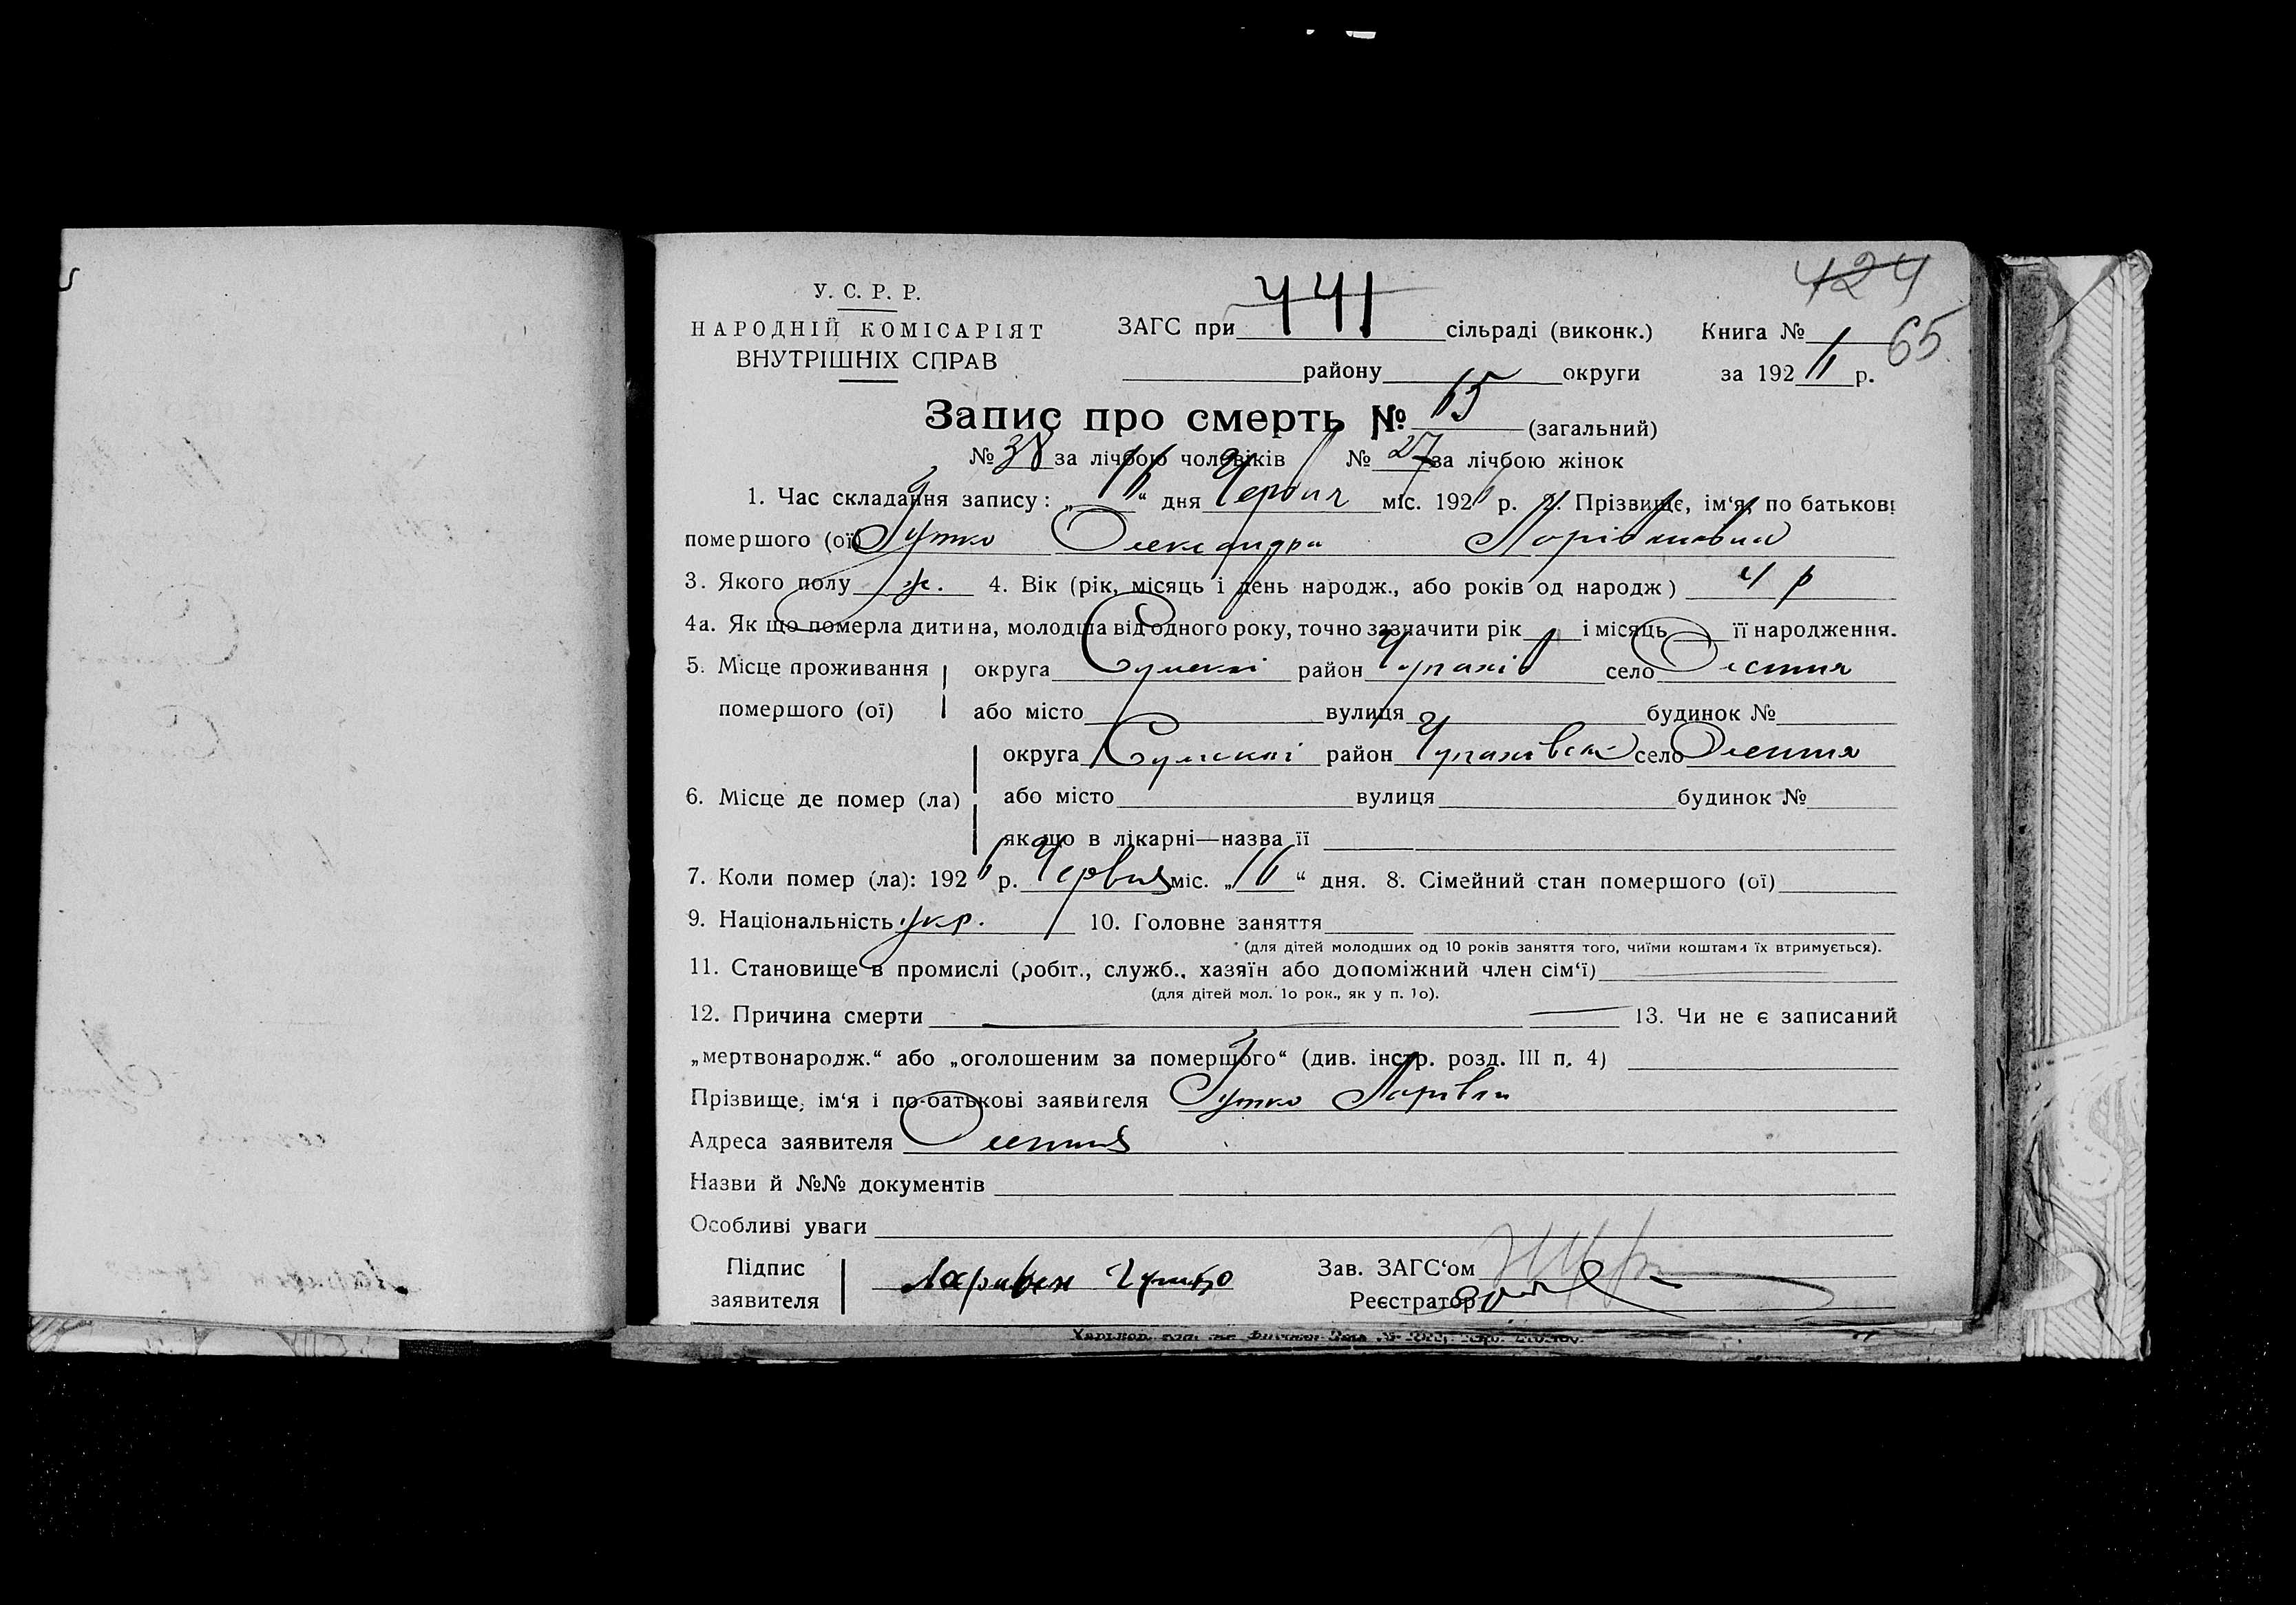 424
У. С. Р. Р.
НАРОДНІЙ КОМІСАРІЯТ
ВНУТРІШНІХ СПРАВ
ЗАГС при 441 сільраді (виконк.) Книга № 1 65
району округи за 192 р.
Запис про смерть № 65 (загальний)
№ 38 за лічбою чоловіків № 27 за лічбою жінок
1. Час складання запису: „ “ дня Червня міс. 192 р. 2. Прізвище, ім‘я, по батькові
помершого (ої) Гутко Олександра Ларівоновна
3. Якого полу ж. 4. Вік (рік, місяць і день народж., або років од народж) 4 р
4а. Як що померла дитина, молодша від одного року, точно зазначити рік і місяць її народження.
5. Місце проживання округа Сумскі район Чупахів село Олешня
помершого (ої) або місто вулиця будинок №
округа Сумскі район Чупахівск село Олешня
6. Місце де помер (ла) або місто вулиця будинок №
як що в лікарні—назва її
7. Коли помер (ла): 192 р. Червня міс. „ “ дня. 8. Сімейний стан помершого (ої)
9. Національність укр. 10. Головне заняття
(для дітей молодших од 10 років заняття того, чиїми коштами їх втримується).
11. Становище в промислі (робіт., служб., хазяїн або допоміжний член сім‘ї)
(для дітей мол. 1о рок., як у п. 1о).
12. Причина смерти — 13. Чи не є записаний
„мертвонародж.“ або „оголошеним за помершого“ (див. інстр. розд. III п. 4)
Прізвище, ім‘я і по-батькові заявителя Гутко Ларівон
Адреса заявителя Олешня
Назви й №№ документів
Особливі уваги
Підпис Зав. ЗАГС‘ом
заявителя Ларивон Гутко Реєстратор